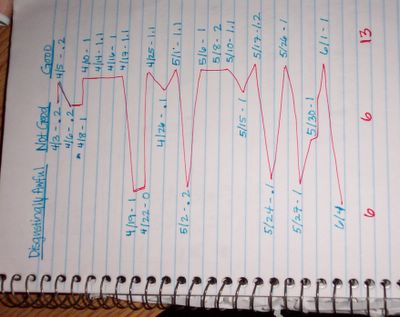 Disgustingly Awful Not Good GOOD
4/3 - .2 4/5 - .2
4/6 - .2
4/8 - 1 4/10 - 1
4/14 - 1.1
4/16 - 1
4/17 - 1.1
4/19 - 1
4/22 - 0 4/25 - 1.1
4/26 - .1
5/1 - 1.1
5/2 - .2
5/6 - 1
5/8 - 2
5/10 - 1.1
5/15 - 1
5/17 - 1.2
5/24 - .1
5/26 - 1
5/29 - 1
5/30 - 1
6/1 - 1
6/4
6 6 13